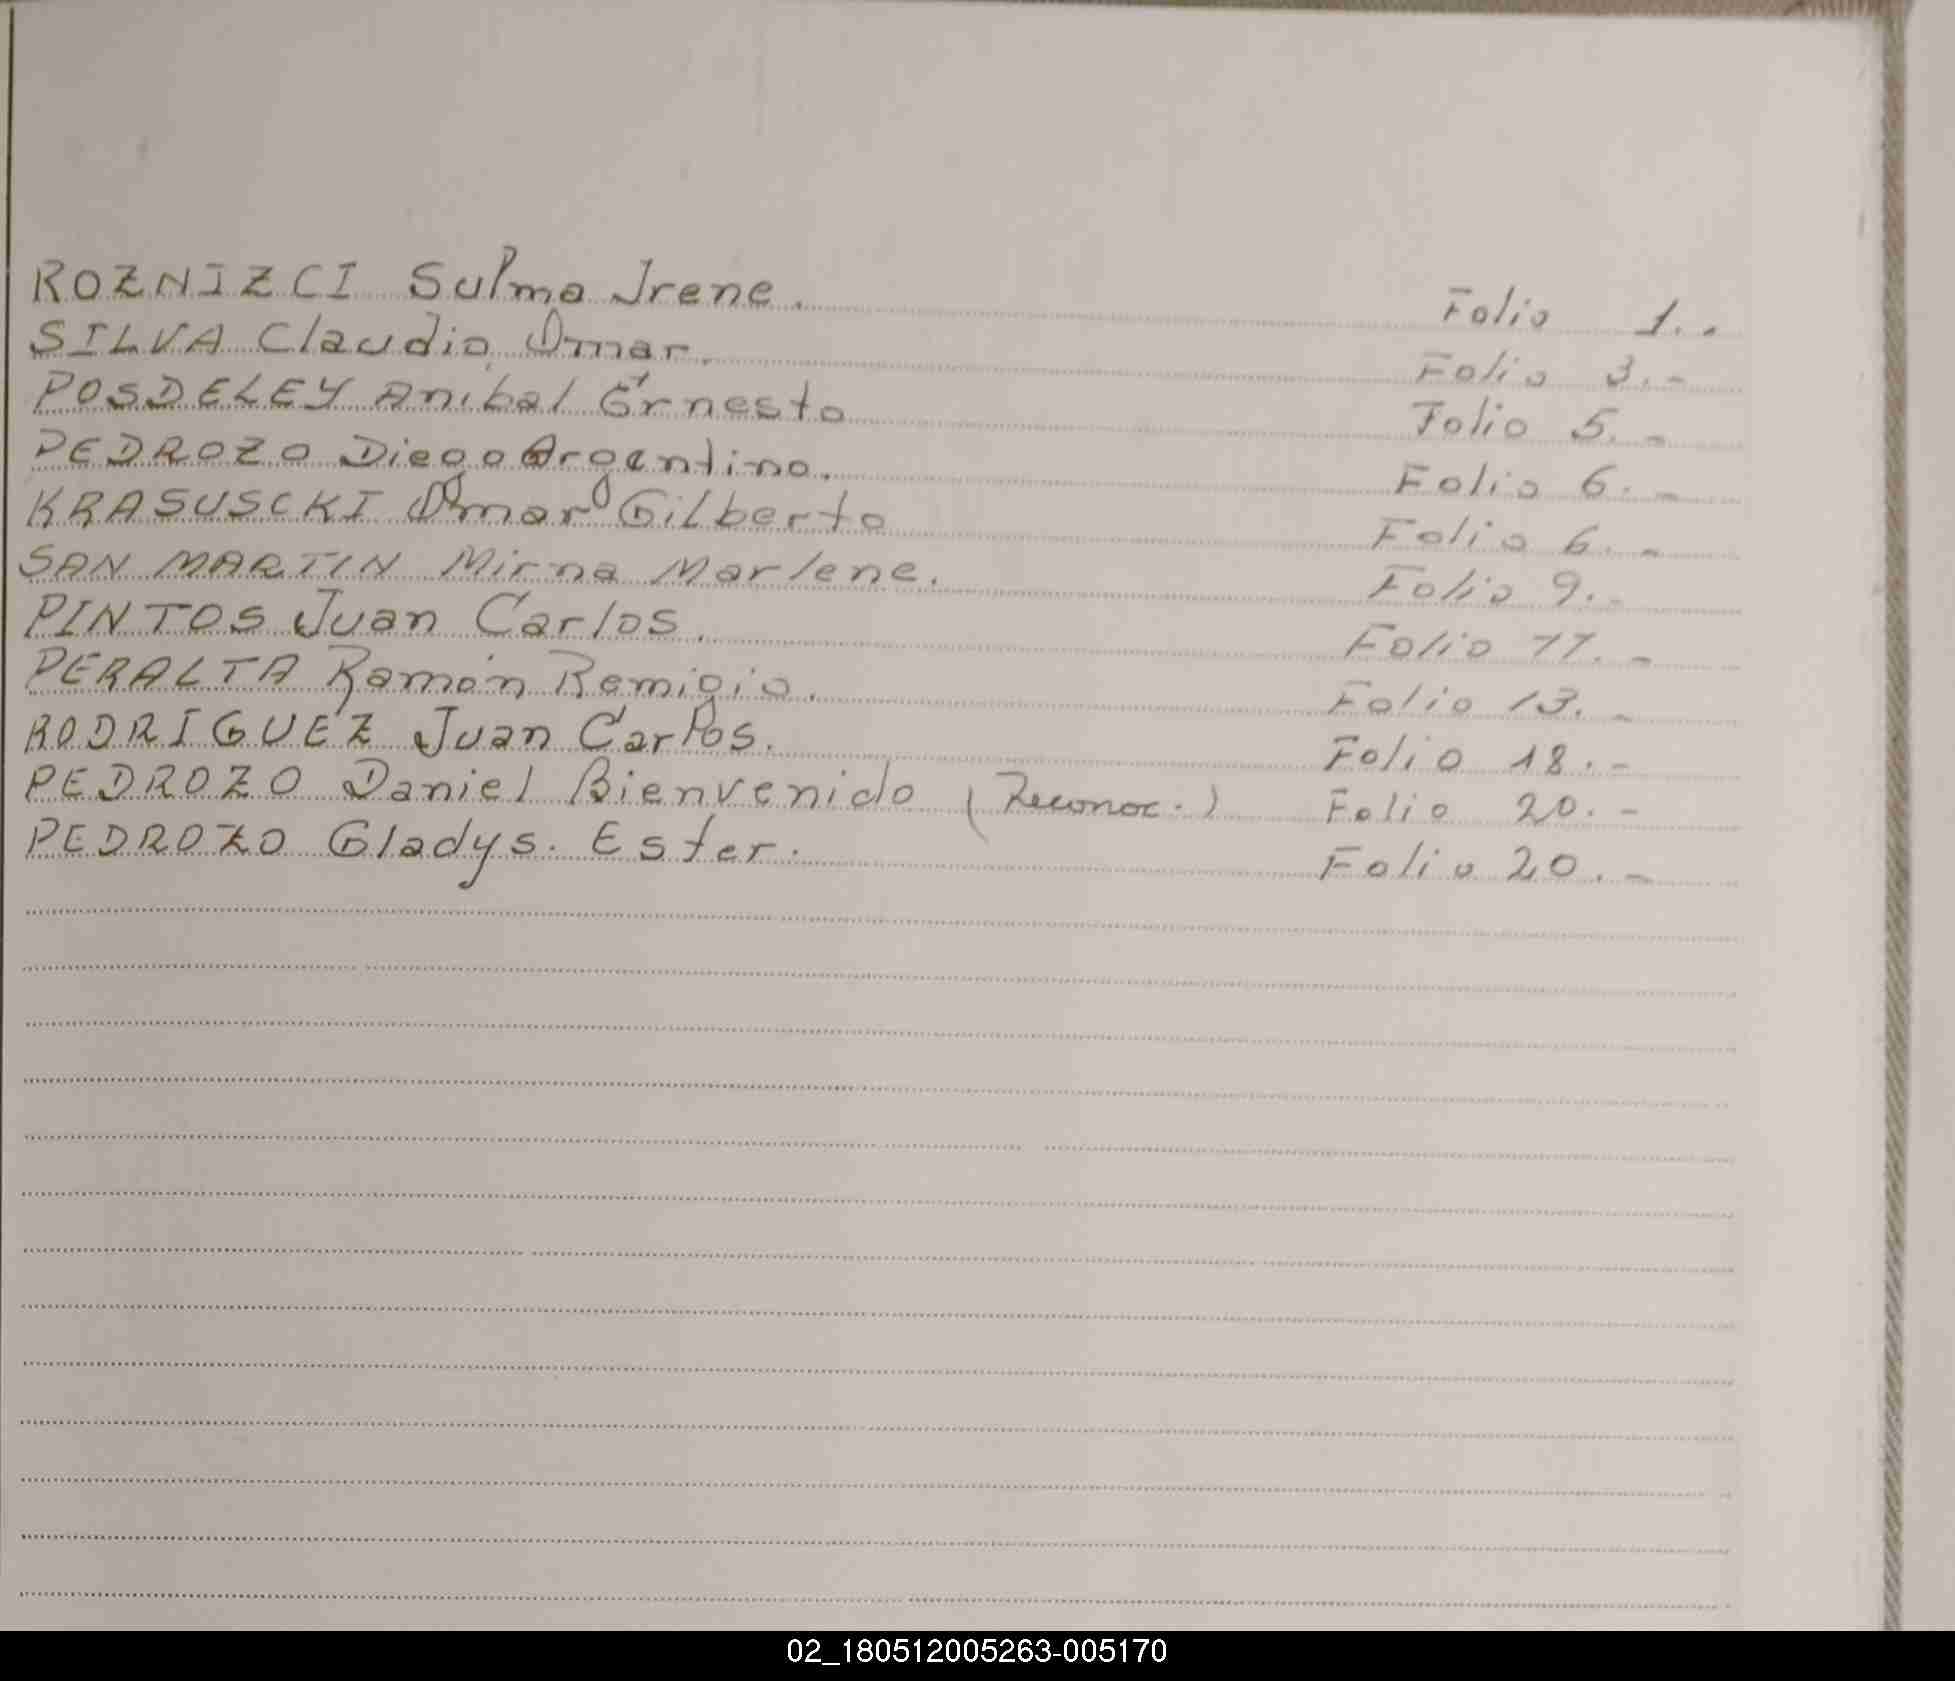 ROZNIZCI Sulma Irene. Folio 1..
SILVA Claudio Omar. Folio 3.-
POSDELEY Anibal Ernesto Folio 5.-
PEDROZO Diego Argentino. Folio 6.-
KRASUSCKI Omar Gilberto Folio 6.-
SAN MARTIN Mirna Marlene. Folio 9.-
PINTOS Juan Carlos. Folio 11.-
PERALTA Ramón Remigio. Folio 13.-
RODRIGUEZ Juan Carlos. Folio 18.-
PEDROZO Daniel Bienvenido (Reconoc.) Folio 20.-
PEDROZO Gladys. Ester. Folio 20.-
02_180512005263-005170